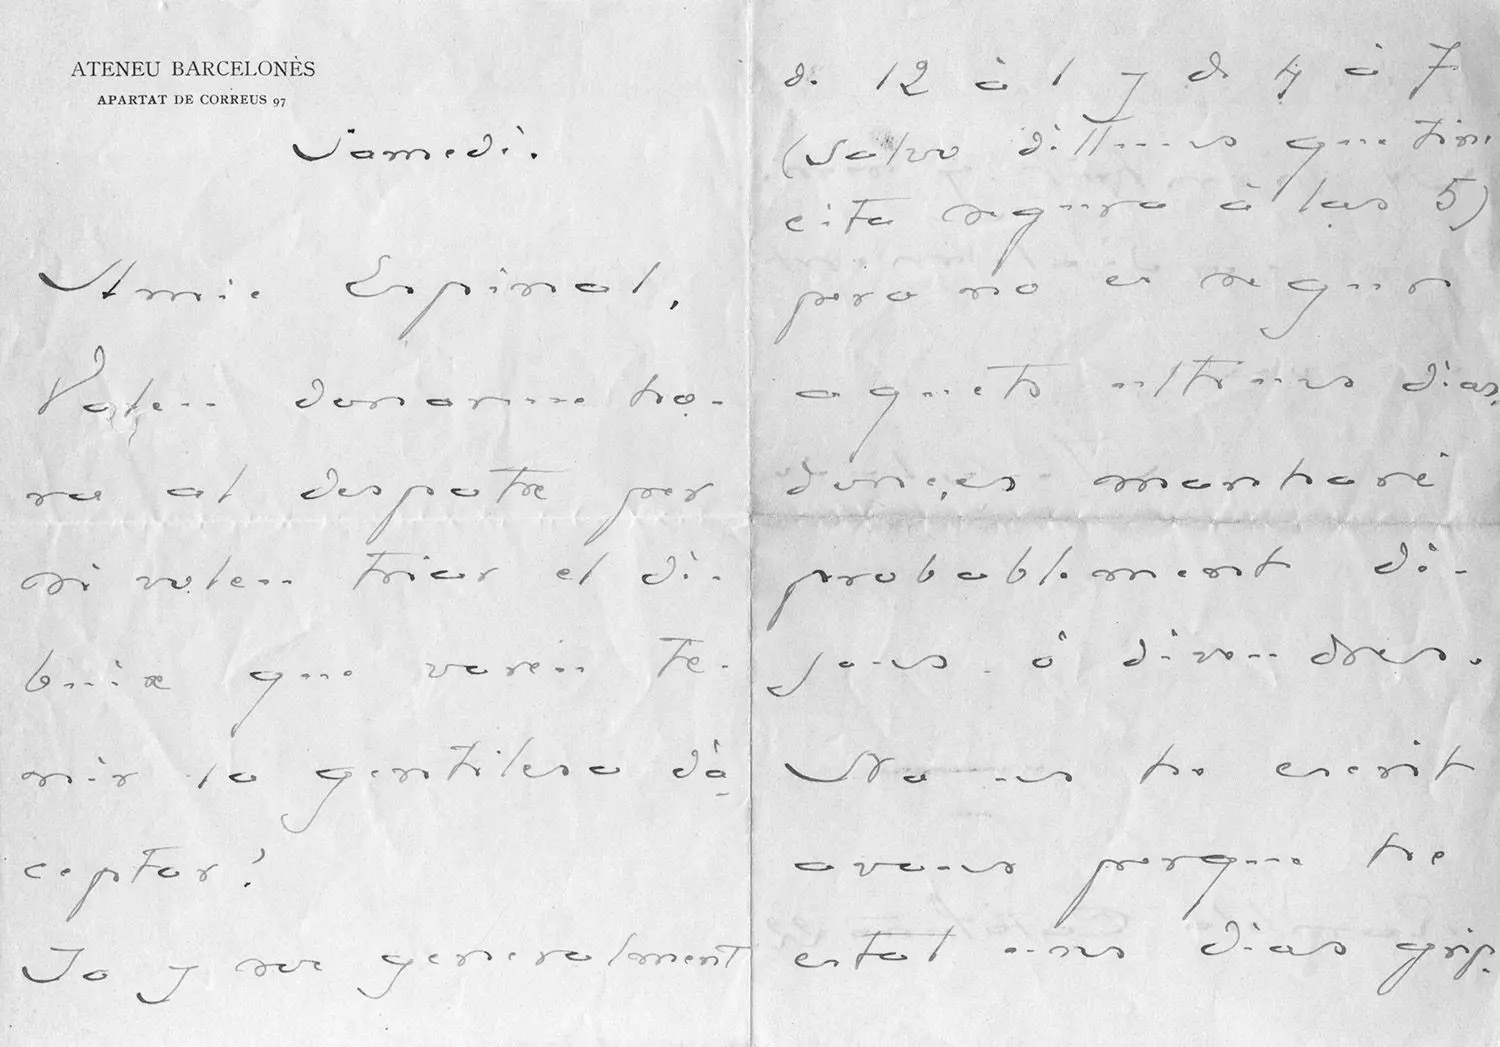 ATENEU BARCELONÈS
APARTAT DE CORREUS 97
Samedì.
Amic Espinal,
Volen donarme ho-
ra al despatx per
si volen triar el di-
buix que varen te-
nir la gentilesa d'a-
ceptar?
Jo y soc generalment
de 12 à 1 y de 4 à 7
(Salvo dilluns que tinc
cita segura à las 5)
pero no es segur
aquets ultims dias,
donçes marxaré
probablement di-
jous ó divendres.
No us he escrit
avans perque he
estat uns dias grip-